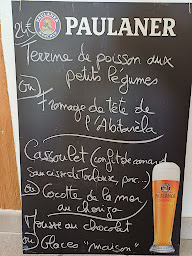 24€ PAULANER
Terrine de poisson aux
petits légumes
ou
Fromage de tête de
l'Abitarèla
Cassoulet (confit de canard
saucisse de Toulouse, porc...)
ou Cocotte de la mer
au chorizo
Mousse au chocolat
ou Glaces "maison"
PAULANER